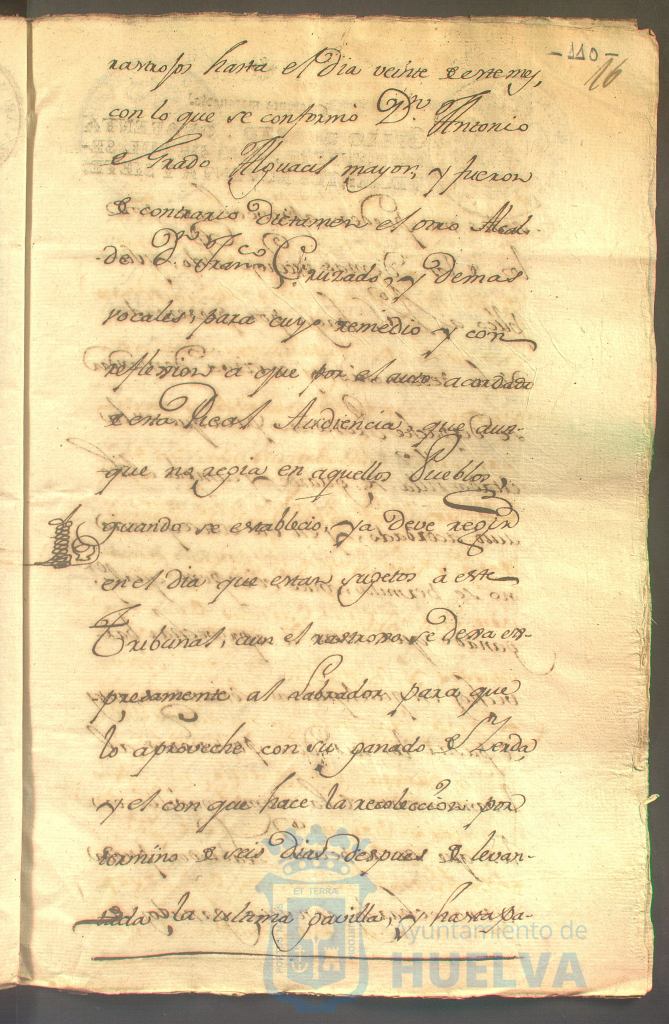 - 110 -
16
rastrojos hasta el dia veinte de este mes,
con lo que se conformó Dn. Antonio
de Grado Alguacil mayor, y fueron
de contrario dictamen el otro Alcal-
de Dn. Franco. Cruzado, y demas
vocales, para cuyo remedio y con
reflexion a que por el auto acordado
de esta Real Audiencia, que aun-
que no regia en aquellos Pueblos
quando se establecio, ya deve regir
en el dia que estan sugetos á este
Tribunal, aun el rastrojo, se dexa ex-
presamente al Labrador para que
lo aproveche con su ganado de Zerda,
y el con que hace la recoleccion por
termino de seis dias despues de levan-
tada la ultima gavilla, y hasta pa-
ET TERRÆ
Ayuntamiento de
HUELVA